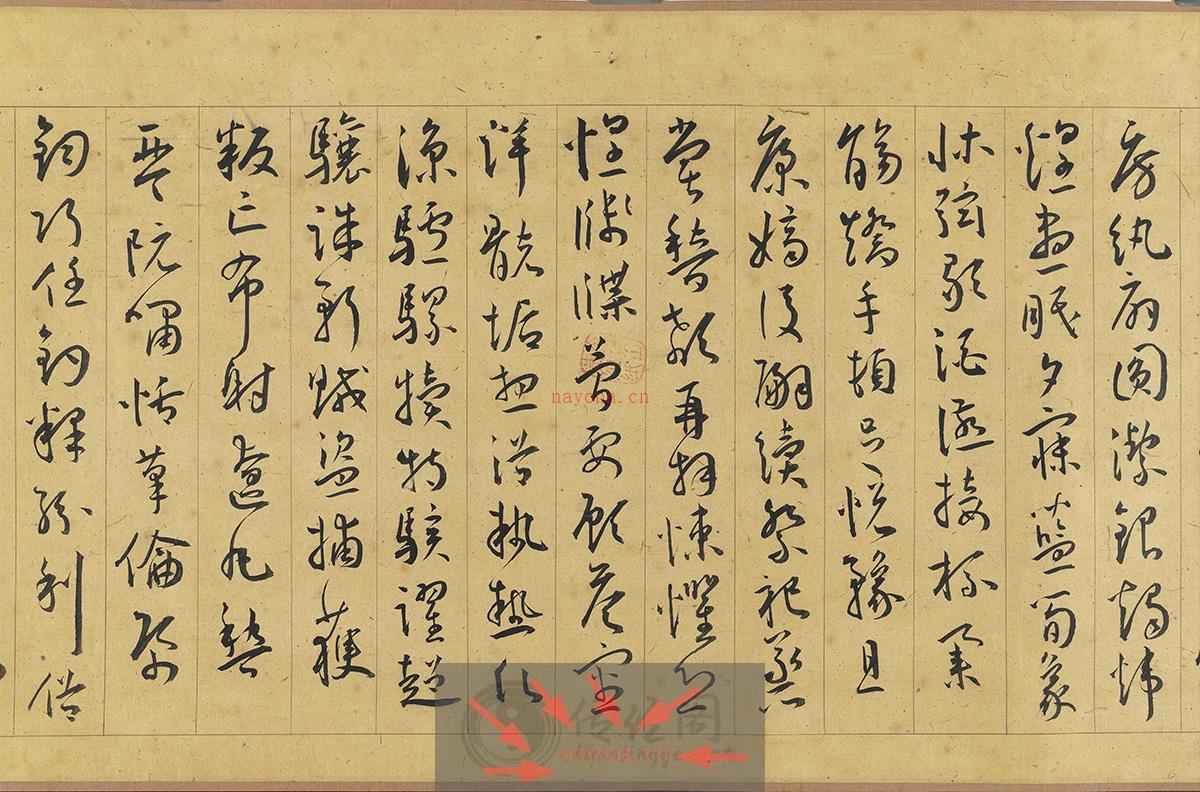 房紈扇圓潔銀燭煒
煌晝眠夕寐藍筍象
床弦歌酒讌接杯舉
觴矯手頓足悅豫且
康嫡後嗣續祭祀蒸
嘗稽顙再拜悚懼恐
惶牋牒簡要顧答審
詳骸垢想浴執熱願
涼驢騾犢特駭躍超
驤誅斬賊盜捕獲
叛亡布射遼丸嵇
琴阮嘯恬筆倫紙
鈞巧任釣釋紛利俗
nayona.cn